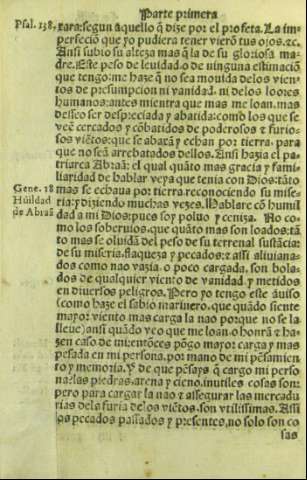 Parte primera
Psal. 138.
rara: segun aquello q̃ dize por el profeta. La im-
perfeciõ que yo pudiera tener vierõ tus ojos. ⁊c.
Ansi subio su alteza mas q̃ la de su gloriosa ma-
dre. Este peso de leuidad o de ninguna estimaciõ
que tengo: me haze q̃ no sea mouida delos vien-
tos de presumpcion ni vanidad, ni delos loores
humanos: antes mientra que mas me loan, mas
desseo ser despreciada y abatida: comõ los que se
veẽ cercados y cõbatidos de poderosos ⁊ furio-
sos viẽtos: que se abaxã y echan por tierra, para
que no seã arrebatados dellos. Ansi hazia el pa-
triarca Abraã: el qual quãto mas gracia y fami-
liaridad de hablar veya que tenia con Dios: tãto
Gene. 18
Hũildad
de Abraã
mas se echaua por tierra, reconociendo su mise-
ria: y diziendo muchas vezes. Hablare cõ humil
dad a mi Dios: pues soy poluo y ceniza. No co-
mo los soberuios, que quãto mas son loados: tã-
to mas se oluidã del peso de su terrenal sustãcia:
de su miseria, flaqueza y pecados: ⁊ assi aliuiana-
dos como nao vazia, o poco cargada, son bola-
dos de qualquier viento de vanidad, y metidos
en diuersos peligros. Pero yo tengo este auiso
(como haze el sabio marinero, que quãdo siente
mayor viento mas carga la nao porque no se la
lleue) ansi quãdo veo que me loan, o honrã ⁊ ha-
zen caso de mi: entõces põgo mayor carga y mas
pesada en mi persona, por mano de mi pẽsamiẽn
to y memoria. Y de que pẽsays q̃ cargo mi perso
na: las piedras, arena y cieno, inutiles cosas son:
pero para cargar la nao ⁊ assegurar las mercadu
rias dela furia delos viẽtos, son vtilissimas. Assi
los pecados passados y presentes, no solo son co
sas